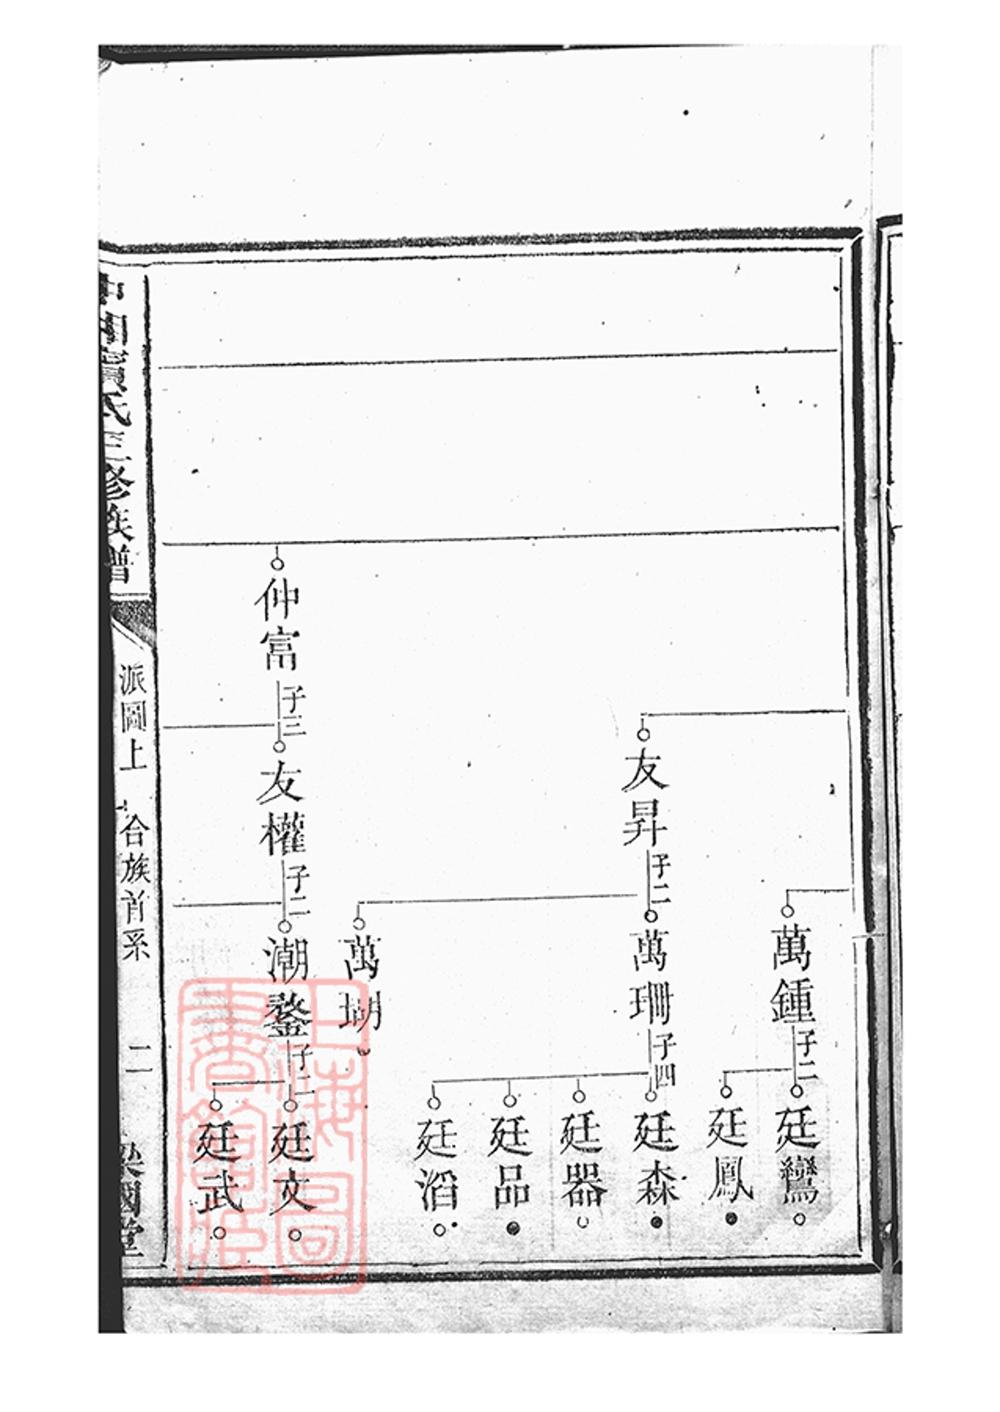 萬鍾
子二
廷鸞
廷鳳
友昇
子二
萬珊
子四
廷森
廷器
廷品
廷滔
萬瑚
仲富
子三
友權
子二
潮鼇
子二
廷文
廷武
中湘賓氏三修族譜
派圖上
合族首系
二
梁國堂
上海圖書館藏